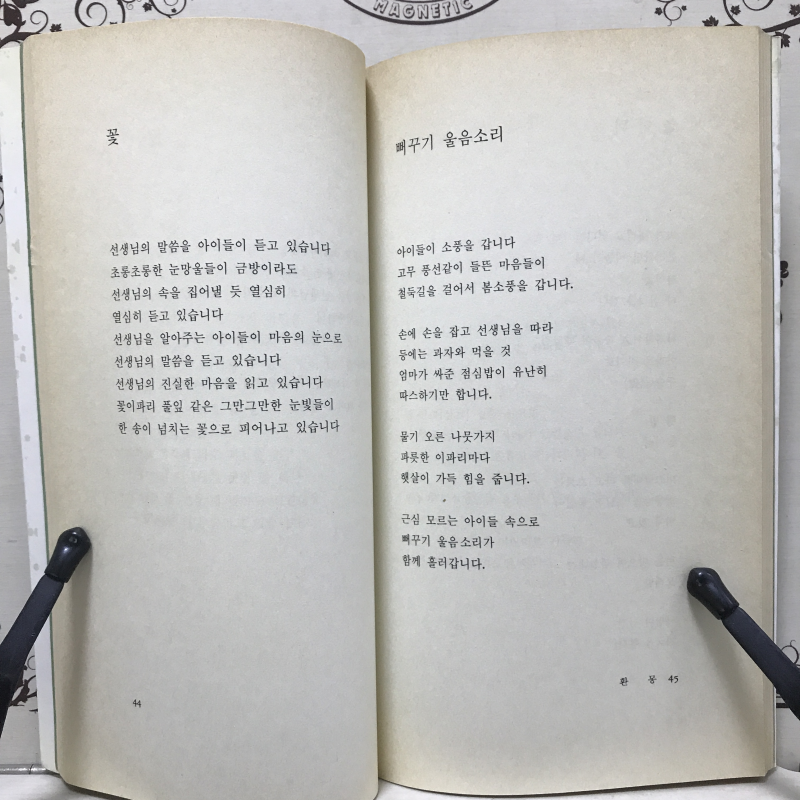 MAGNETIC
꽃
선생님의 말씀을 아이들이 듣고 있습니다
초롱초롱한 눈망울들이 금방이라도
선생님의 속을 집어낼 듯 열심히
열심히 듣고 있습니다
선생님을 알아주는 아이들이 마음의 눈으로
선생님의 말씀을 듣고 있습니다
선생님의 진실한 마음을 읽고 있습니다
꽃이파리 풀잎 같은 그만그만한 눈빛들이
한 송이 넘치는 꽃으로 피어나고 있습니다
44
뻐꾸기 울음소리
아이들이 소풍을 갑니다
고무 풍선같이 들뜬 마음들이
철둑길을 걸어서 봄소풍을 갑니다.
손에 손을 잡고 선생님을 따라
등에는 과자와 먹을 것
엄마가 싸준 점심밥이 유난히
따스하기만 합니다.
물기 오른 나뭇가지
파릇한 이파리마다
햇살이 가득 힘을 줍니다.
근심 모르는 아이들 속으로
뻐꾸기 울음소리가
함께 흘러갑니다.
환 몽 45